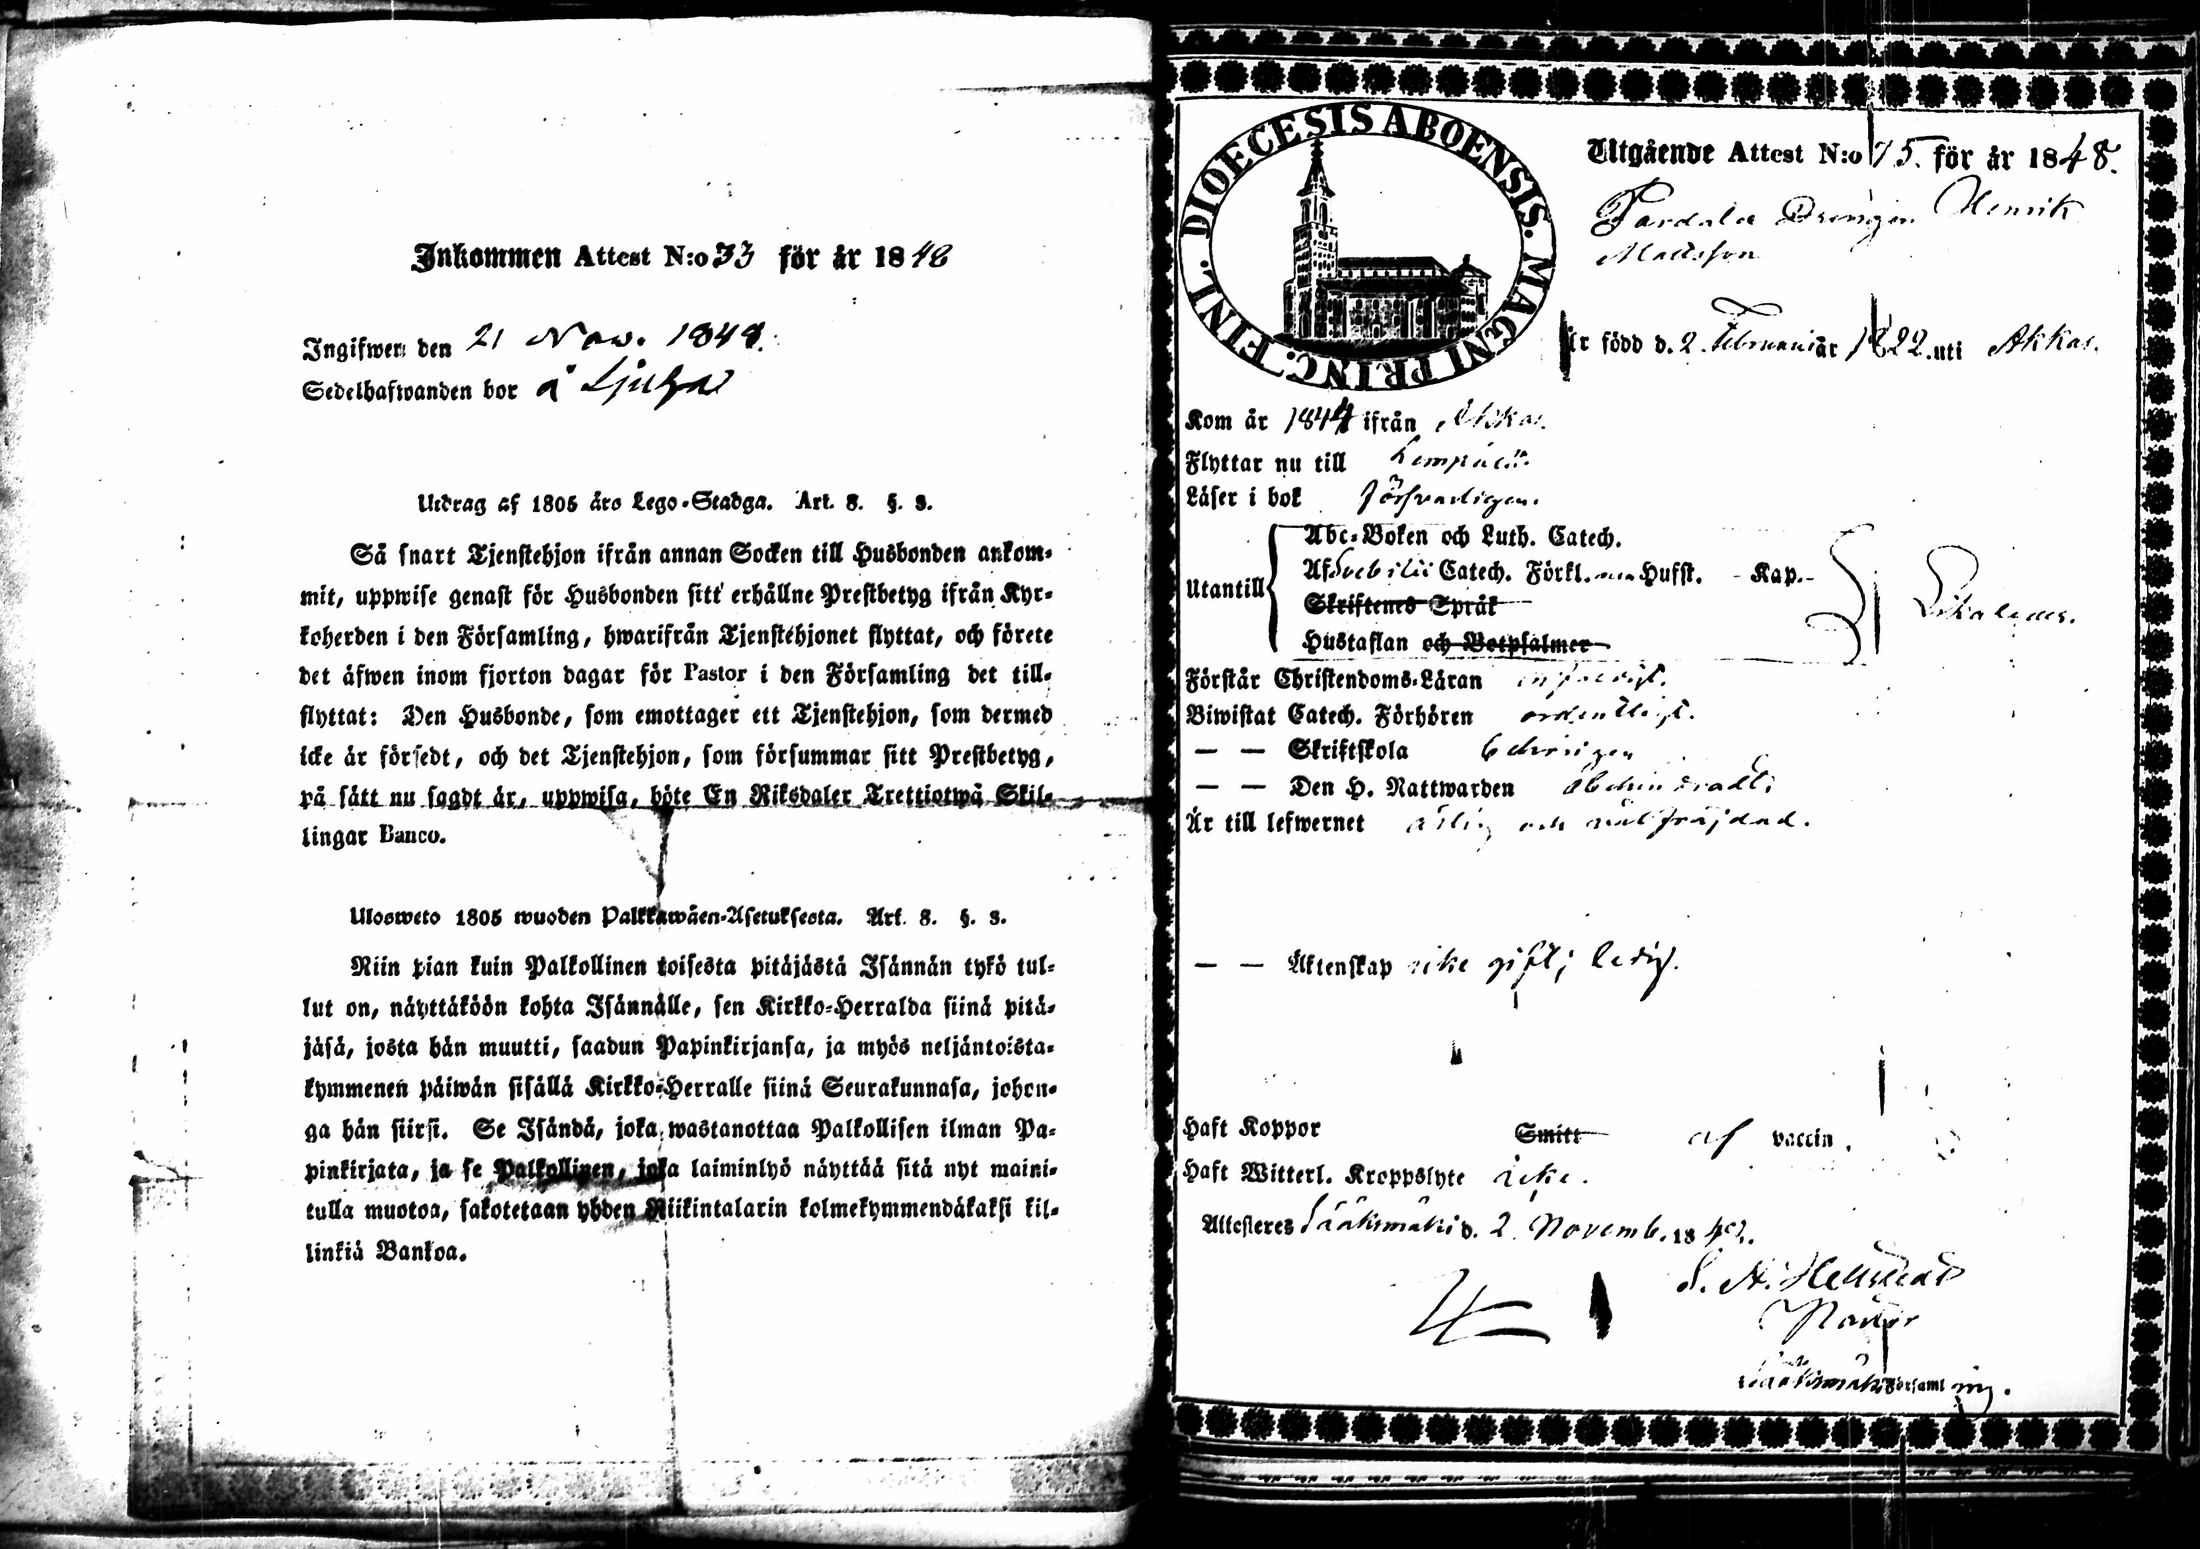 Inkommen Attest N:o 33 för år 1848
Ingifwen den 21 Nov. 1848.
Sedelhafwanden bor å
Utdrag af 1805 års Lego-Stadga. Art. 8. §. 3.
Så snart Tjenstehjon ifrån annan Socken till Husbonden ankom-
mit, uppwise genast för Husbonden sitt erhållne Prestbetyg ifrån Kyr-
koherden i den Församling, hwarifrån Tjenstehjonet flyttat, och förete
det äfwen inom fjorton dagar för Pastor i den Församling det till-
flyttat: Den Husbonde, som emottager ett Tjenstehjon, som dermed
icke är försedt, och det Tjenstehjon, som försummar sitt Prestbetyg,
på sätt nu sagdt är, uppwisa, böte En Riksdaler Trettiotwå Skil-
lingar Banco.
Ulosweto 1805 wuoden Palkkawäen-Asetuksesta. Art. 8. §. 3.
Niin pian kuin Palkollinen toisesta pitäjästä Isännän tykö tul-
lut on, näyttäköön kohta Isännälle, sen Kirkko-Herralda siinä pitä-
jäsä, josta hän muutti, saadun Papinkirjansa, ja myös neljäntoista-
kymmenen päiwän sisällä Kirkko-Herralle siinä Seurakunnasa, johon-
ga hän siirsi. Se Isändä, joka wastanottaa Palkollisen ilman Pa-
pinkirjata, ja se Palkollinen, joka laiminlyö näyttää sitä nyt maini-
tulla muotoa, sakotetaan yhden Riikintalarin kolmekymmendäkaksi kil-
linkiä Bankoa.
DIOECESIS ABOENSIS. MAGNI PRINC. FINL.
Utgående Attest N:o 75. för år 1848.
Drengen Henrik
Mattsson
Är född d. 2. Februari år 1822. uti Akkas.
Kom år 1844 ifrån Akkas.
Flyttar nu till Lempälä.
Läser i bok försvarligen.
Utantill
Abc-Boken och Luth. Catech.
Af Svebilii Catech. Förkl. Husst. Kap.
Skriftenes Språk
Hustaflan och Botpsalmer
Likaledes.
Förstår Christendoms-Läran
Biwistat Catech. Förhören ordentligt.
— — Skriftskola behörigen
— — Den H. Nattwarden obehindradt;
Är till lefwernet ärlig och välfräjdad.
— — Äktenskap icke gift; ledig.
Haft Koppor Smitt af vaccin.
Haft Witterl. Kroppslyte icke.
Attesteres Sääksmäki d. 2. Novemb. 1848.
Pastor
Sääksmäki Församling.